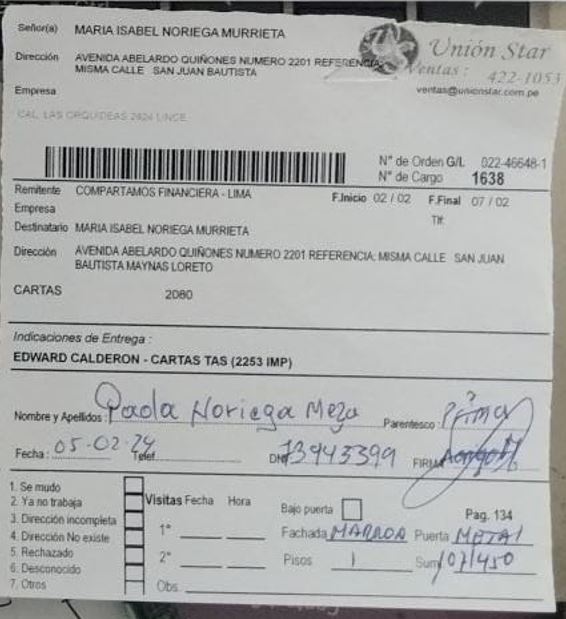 Señor(a) MARIA ISABEL NORIEGA MURRIETA
Unión Star
Dirección AVENIDA ABELARDO QUIÑONES NUMERO 2201 REFERENCIA:
MISMA CALLE SAN JUAN BAUTISTA
Ventas : 422-1053
ventas@unionstar.com.pe
Empresa
CAL. LAS ORQUIDEAS 2624 LINCE
N° de Orden G/L 022-46648-1
N° de Cargo 1638
Remitente COMPARTAMOS FINANCIERA - LIMA F.Inicio 02 / 02 F.Final 07 / 02
Empresa Tlf:
Destinatario MARIA ISABEL NORIEGA MURRIETA
Dirección AVENIDA ABELARDO QUIÑONES NUMERO 2201 REFERENCIA: MISMA CALLE SAN JUAN
BAUTISTA MAYNAS LORETO
CARTAS 2080
Indicaciones de Entrega :
EDWARD CALDERON - CARTAS TAS (2253 IMP)
Nombre y Apellidos : Paola Noriega Meza Parentesco : Prima
Fecha : 05-02-24 Telef. DNI 73943399 FIRMA
1. Se mudo
2. Ya no trabaja
3. Dirección incompleta
4. Dirección No existe
5. Rechazado
6. Desconocido
7. Otros
Visitas Fecha Hora
1°
2°
Obs.
Bajo puerta Pag. 134
Fachada MARROA Puerta METAl
Pisos 1 Sum